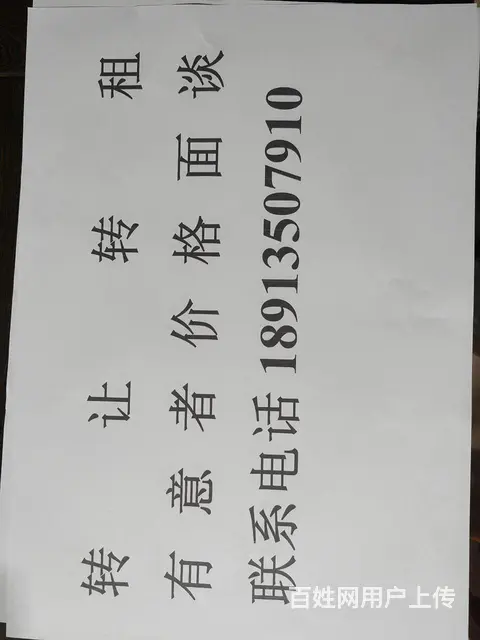 转让转租
有意者价格面谈
联系电话18913507910
百姓网用户上传